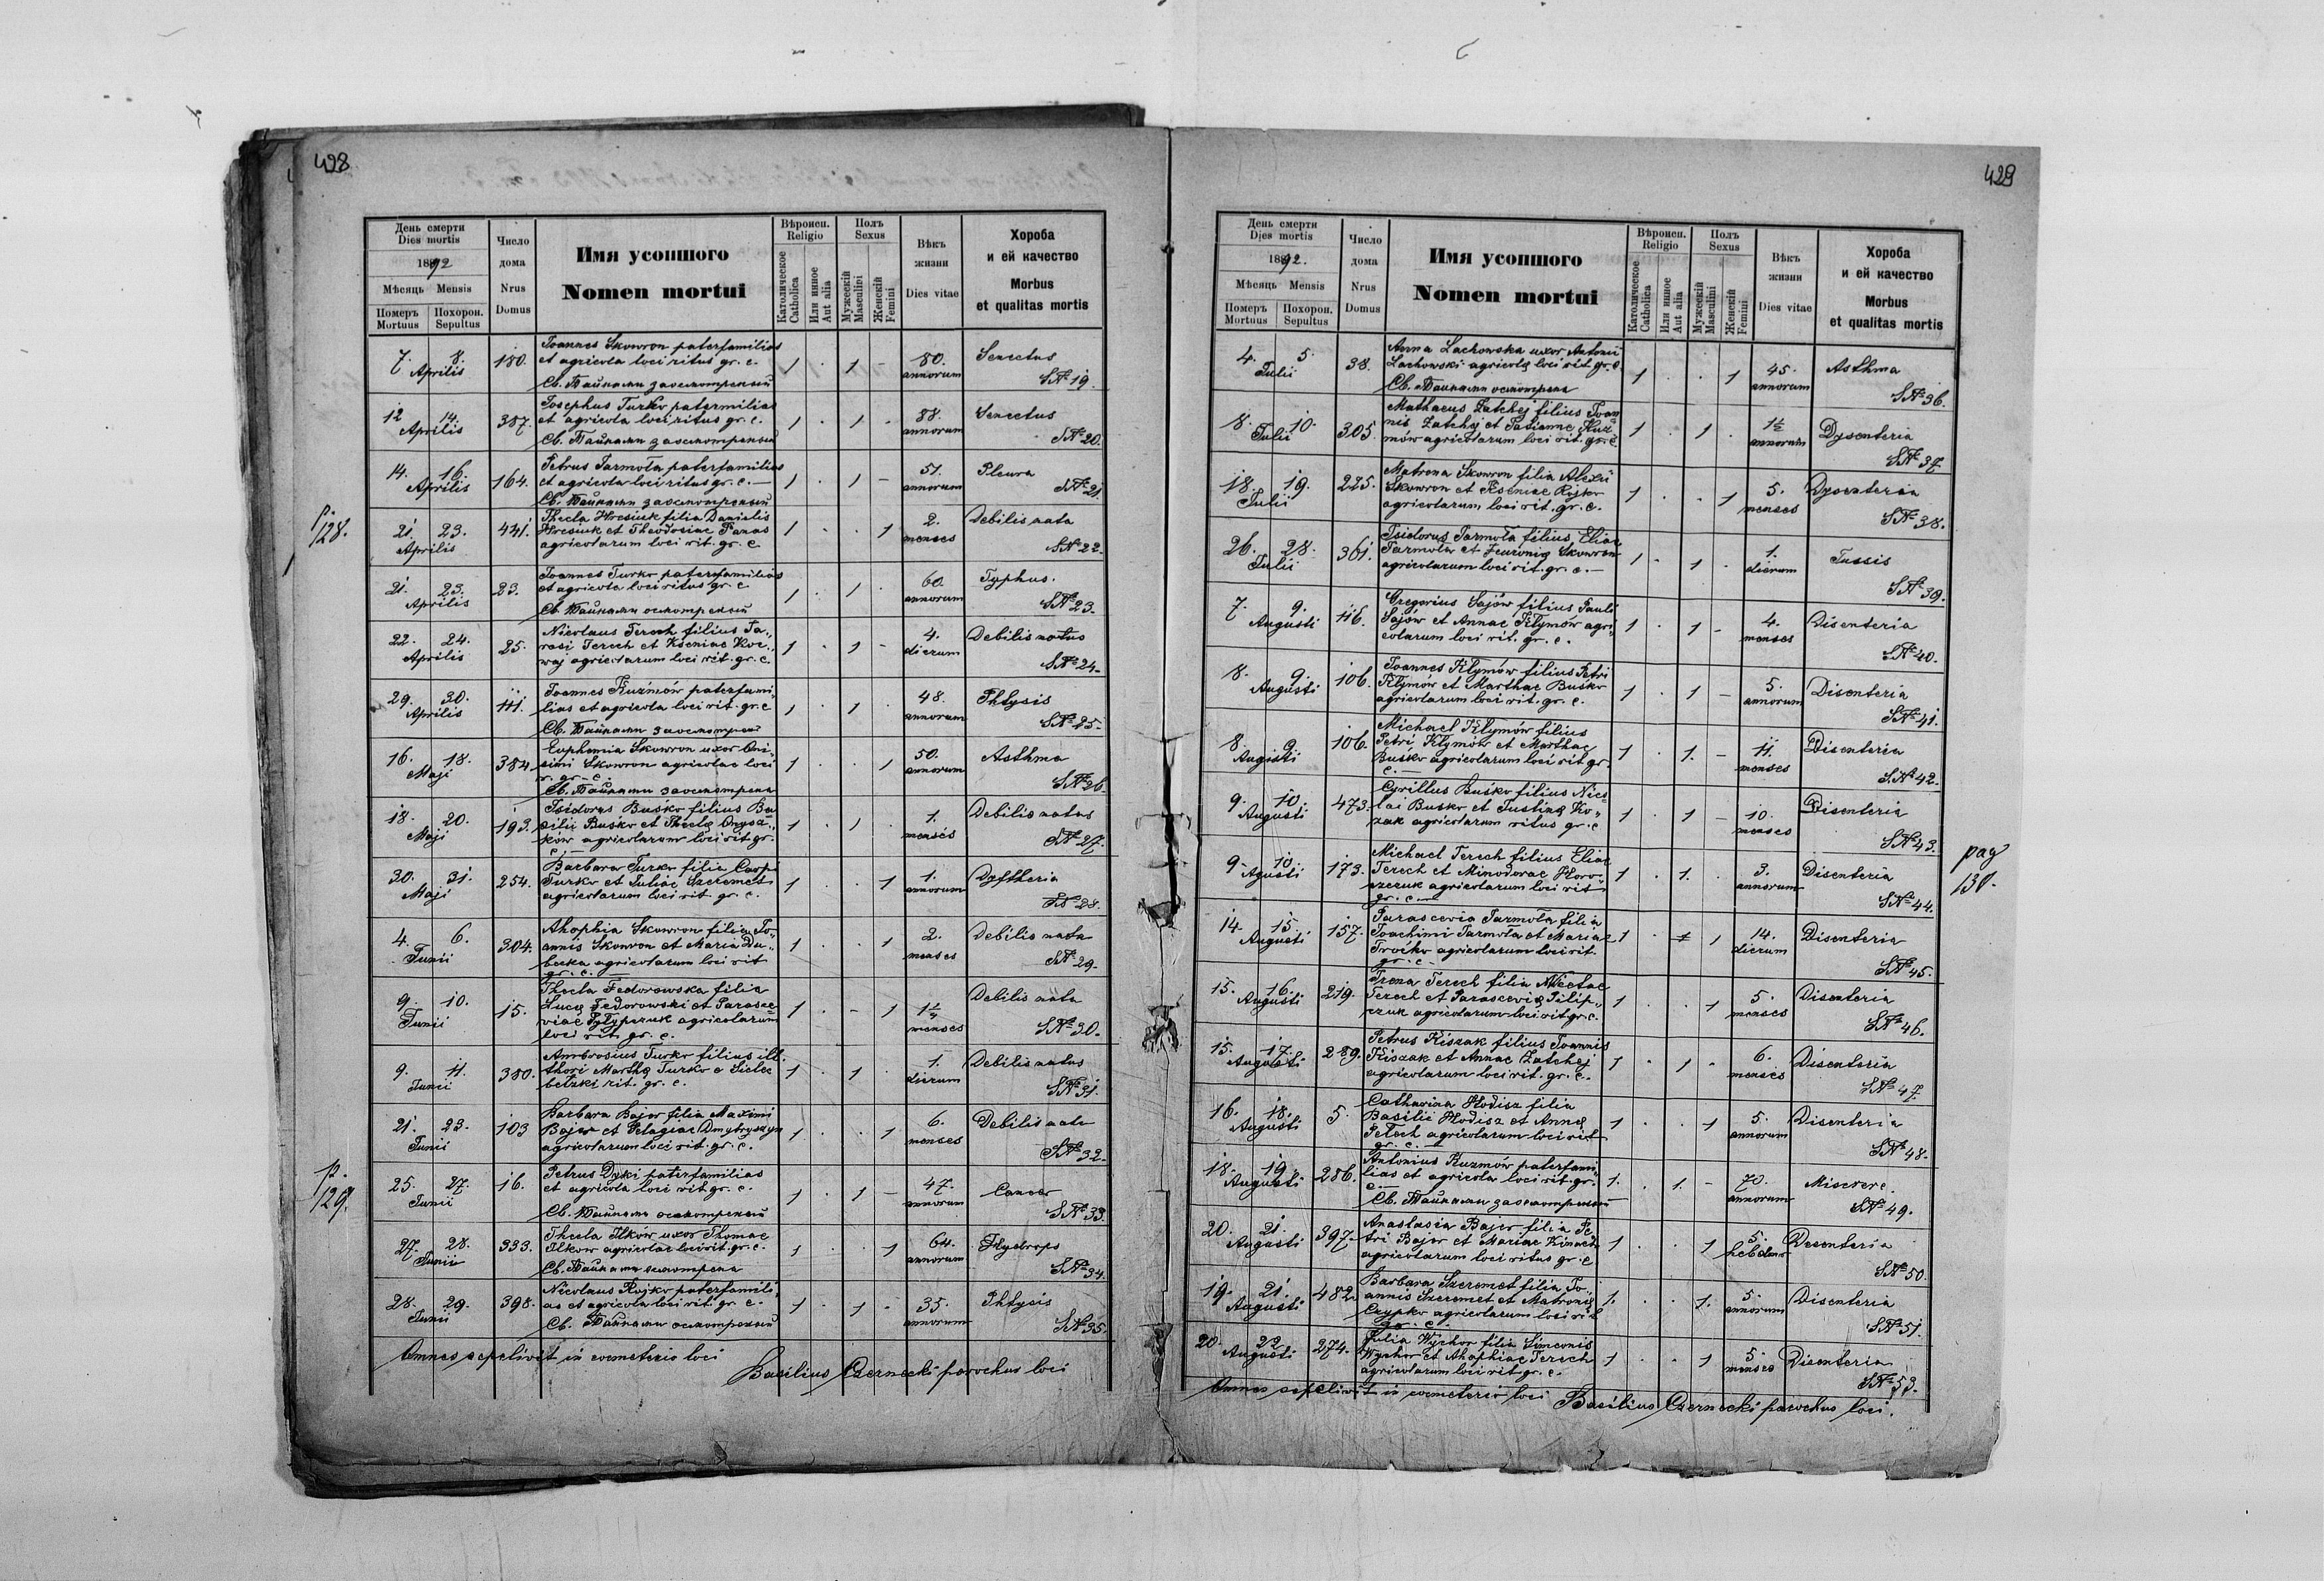 428
День смерти
Dies mortis
1892
Мѣсяць Mensis
Померъ
Mortuus
Похорон.
Sepultus
Число
дома
Nrus
Domus
Имя усопшого
Nomen mortui
Вѣроисп.
Religio
Католическое
Catholica
Или инное
Aut alia
Полъ
Sexus
Мужескій
Masculini
Женскій
Femini
Вѣкъ
жизни
Dies vitae
Хороба
и ей качество
Morbus
et qualitas mortis
7. 8. Aprilis 180. Joannes Skowron paterfamilias
et agricola loci ritus gr. c. 1 . 1 - 80. annorum Senectus
Св. Тайнами засмотреный S№ 19.
12 14. Aprilis 387. Josephus Turko patermilias
et agricola loci ritus gr. c. 1 . 1 . 88. annorum Senectus
Св. Тайнами засмотреный S№ 20.
14. 16. Aprilis 164. Petrus Jarmoła paterfamilias
et agricola loci ritus gr. c. — 1 . 1 - 51. annorum Pleura
Св. Тайнами засмотреный S№ 21.
p.
128.
21. 23. Aprilis 441. Thecla Hresiuk filia Danielis
Hresiuk et Theodosiae Panas 1 . . 1 2. menses Debilis nata
agricolarum loci rit. gr. c S№ 22.
21. 23. Aprilis 23. Joannes Turko paterfamilias
et agricola loci ritus gr. c 1 . 1 . 60. annorum Typhus.
Св. Тайнами осмотреный S№ 23.
22. 24. Aprilis 25. Nicolaus Terech filius Ta„
rasi Terech et Kseniae Kor„ 1 . 1 - 4. dierum Debilis natus
waj agricolarum loci rit. gr. c. S№ 24.
29. 30. Aprilis 111. Joannes Kuzmów paterfami„
lias et agricola loci rit. gr. c 1 . 1 . 48. annorum Phtysis
Св. Тайнами засмотрен S№ 25.
16. 18. Maji 384. Euphemia Skowron uxor Oni„
simi Skowron agricolae loci 1 . . 1 50. annorum Asthma
r. gr. c.
Св. Тайнами засмотрена S№ 26.
18. 20. Maji 193. Isidorus Buśko filius Ba
silii Buśko et Thecle Onysz„ 1 . 1 . 1. menses Debilis natus
ków agricolarum loci rit gr.
c. — S№ 27.
30. 31. Maji 254. Barbara Turko filia Carpi
Turko et Juliae Szeremet 1 . . 1 1. annorum Dyftheria
agricolarum loci rit. gr. c. S№ 28.
4. 6. Junii 304. Ahophia Skowron filia Jo„
annis Skowron et Maria Du„ 1 . . 1 2. menses Debilis nata
becka agricolarum loci rit
gr. c. S№ 29.
9. 10. Junii 15. Thecla Fedorowska filia
Luce Fedorowski et Parasce„ 1 . - 1 1½ menses Debilis nata
viae Pyłypczuk agricolarum
loci rit. gr. c. S№ 30.
9. 11. Junii 380. Ambrosius Turko filius ill.
thori Marthe Turko e Sielec 1 . 1 . 1. dierum Debilis natus
betzki rit. gr. c. S№ 31.
21. 23. Junii 103 Barbara Bajor filia Maximi
Bajor et Pelagiae Dmytryszyn 1 . . 1 6. menses Debilis nata
agricolarum loci rit. gr. c. S№ 32.
p.
129.
25. 27. Junii 16. Petrus Dyki paterfamilias
et agricola loci rit. gr. c. 1 . 1 - 47. annorum Cancer
Св. Тайнами осмотреный S№ 33.
27. 28. Junii 333. Thecla Ilków uxor Thomae
Ilkow agricolae loci rit. gr. c. 1 . . 1 64. annorum Hydrops
Св. Тайнами осмотрена S№ 34.
28. 29. Junii 398. Nicolaus Rojko paterfamili„
as et agricola loci rit. gr. c. 1 . 1 - 35. annorum Phtysis
Св. Тайнами осмотреный S№ 35.
Omnes sepelivit in coemeterio loci
Basilius Czernecki parochus loci
429
День смерти
Dies mortis
1892.
Мѣсяць Mensis
Померъ
Mortuus
Похорон.
Sepultus
Число
дома
Nrus
Domus
Имя усопшого
Nomen mortui
Вѣроисп.
Religio
Католическое
Catholica
Или инное
Aut alia
Полъ
Sexus
Мужескій
Masculini
Женскій
Femini
Вѣкъ
жизни
Dies vitae
Хороба
и ей качество
Morbus
et qualitas mortis
4. 5. Julii 38. Anna Lachowska uxor Antonii
Lachowski agricole loci rit. gr. c. 1 . . 1 45. annorum Asthma
Св. Тайнами осмотрена S№ 36.
8. 10. Julii 305. Mathaeus Zatchej filius Joan
nis Zatchej et Tatianne Kuź 1 . 1 . 1½ annorum Dysenteria
mów agricolarum loci rit. gr. c. S№ 37.
18. 19. Julii 225. Matrona Skowron filia Alexii
Skowron et Kseniae Rojko 1 . . 1 5. menses Dysenteria
agricolarum loci rit. gr. c. S№ 38.
26. 28. Julii 361. Isidorus Jarmoła filius Eliae
Jarmoła et Feuronie Skowron 1 . 1 . 1. dierum Tussis
agricolarum loci rit. gr. c. — S№ 39.
7. 9. Augusti 116. Gregorius Sajów filius Pauli
Sajów et Annae Kłymów agri„ 1 . 1 - 4. menses Disenteria
colarum loci rit. gr. c. S№ 40.
8. 9. Augusti 106. Joannes Kłymów filius Petri
Kłymów et Marthae Buśko 1 . 1 - 5. annorum Disenteria
agricolarum loci rit. gr. c. S№ 41.
8. 9. Augusti 106. Michael Kłymów filius
Petri Kłymów et Marthae 1 . 1. - 11. menses Disenteria
Buśko agricolarum loci rit gr.
c. — S№ 42.
9. 10. Augusti 473. Cyrillus Buśko filius Nico
lai Busko et Justine Ko„ 1 . 1 - 10. menses Disenteria
zak agricolarum ritus gr. c S№ 43.
pag
130.
9. 10. Agusti 173. Michael Terech filius Eliae
Terech et Minodorae Horo„ 1 . 1. . 3. annorum Disenteria
szczuk agricolarum loci rit
gr. c. — S№ 44.
14. 15. Augusti 157. Parascevia Jarmoła filia
Joachimi Jarmoła et Mariae 1 . 1 1 14. dierum Disenteria
Troćko agricolarum loci rit.
gr. c S№ 45.
15. 16. Augusti 219. Irena Terech filia Nicetae
Terech et Parascevie Pilip„ 1 . . 1 5. menses Disenteria
czuk agricolarum loci rit gr. c. S№ 46.
15. 17. Augusti 289. Petrus Kiszak filius Joannis
Kiszak et Annae Zatchej 1 . 1 - 6. menses Disenteria
agricolarum loci rit. gr. c. S№ 47.
16. 18. Augusti 5. Catharina Hodisz filia
Basilii Hodisz et Anne 1 . . 1 5. annorum Disenteria
Petech agricolarum loci rit
gr. c. — S№ 48.
18. 19. Augusti 286. Antonius Kuzmów paterfami„
lias et agricola loci rit. gr. 1. . 1. - 70. annorum Miserere.
c. —
Св. Тайнами засмотреный S№ 49.
20. 21. Augusti 397. Anastasia Bajor filia Pe
tri Bajor et Mariae Kinach 1 . . 1 5. hebdom Desenteria
agricolarum loci ritus gr. c S№ 50.
19. 21. Augusti 482. Barbara Szeremet filia Jo„
annis Szeremet et Matronis 1. . . 1. 5. annorum Disenteria
Czypko agricolarum loci rit
gr. c. S№ 51.
20. 22. Augusti 274. Julia Wychor filia Simeonis
Wychor et Ahophiae Terech 1 . . 1 5. menses Disenteria
agricolarum loci rit gr. c. S№ 53.
Omnes sepelivit in coemeterio loci Basilius Czernecki parochus loci.